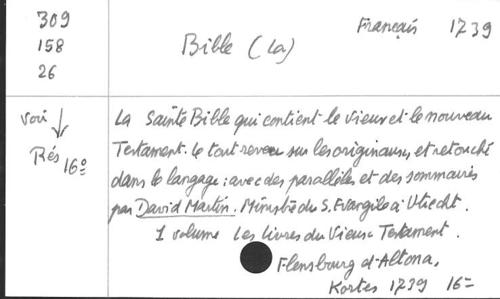 309
158
26
Bible (La)
Français 1739
voir
Rés 16º
La Sainte Bible qui contient le vieux et le nouveau
Testament. le tout reveu sur les originaux et retouché
dans le langage : avec des parallèles et des sommaires
par David Martin. Ministre du S. Evangile à Utrecht.
1 volume Les livres du Vieux Testament.
Flensbourg et Altona,
Kortes 1739 16º